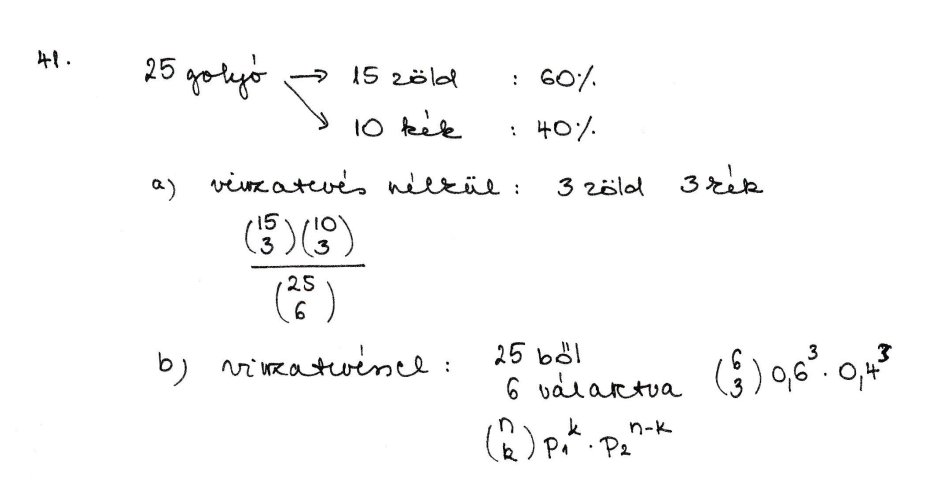 41. 25 golyó → 15 zöld : 60%
↘ 10 kék : 40%
a) visszatevés nélkül : 3 zöld 3 kék
\frac{\binom{15}{3}\binom{10}{3}}{\binom{25}{6}}
b) visszatevéssel : 25 ből
6 választva \binom{6}{3} 0,6^3 · 0,4^3
\binom{n}{k} p_1^k · p_2^{n-k}